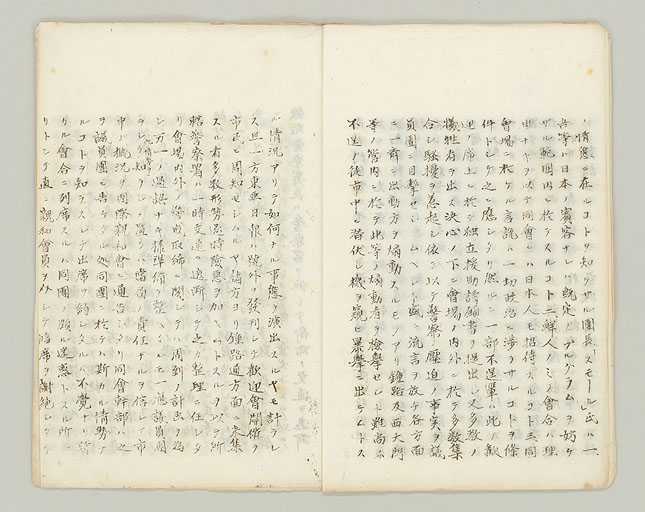 ノ情態ニ在ルコトヲ知ラザル團長スモール氏ハ「
吾等ハ日本ノ賓客ナレバ既定ノプログラムヲ妨ゲ
ザル範圍内ニ於テスルコト二、鮮人ノミノ會合ハ理
由ナキヲ以テ同會ニハ日本人モ招待スルコト三、同
會場ニ於ケル言議ハ一切政治ニ渉ラサルコトヲ條
件トシテ之ニ應シタリ然ルニ一部不逞輩ハ此ノ歡
迎ノ席上ニ於テ獨立援助請願書ヲ提出シ又多数ノ
犠牲者ヲ出ス決心ノ下ニ會場ノ内外ニ於テ多数集
合シ騒擾ヲ惹起シ依テ以テ警察ノ壓迫ノ事実ヲ議
員團ニ目撃セシムヘシト盛ニ流言ヲ放チ各方面
ニ一齊ノ出動方ヲ煽動スルモノアリ鍾路及西大門
等ノ管内ニ於テ此等ノ煽動者ヲ檢擧セシト雖尚ホ
不逞ノ徒市中ニ潜伏シ機ヲ窺ヒ暴擧ニ出デムトス
ル情況アリテ如何ナル事態ヲ演出スルヤモ計ラレ
ス且一方東亜日報ハ號外ヲ發刊シテ歡迎會開催ヲ
市民ニ周知セシムルヤ諸方ヨリ鍾路通方面ニ来集
スル者多数形勢逐時險悪ヲ加ヘムトスルヲ以テ所
轄警察署ハ一時交通ヲ遮断シテ之カ整理ニ任シタ
リ會場内外ノ 取締ニ関シテハ周到ノ計画ヲ為
シ万一ノ過誤ナキ様準備ヲ整ヘタルモ一應議員團
ヲシテ 知ラシメ置クハ當局ノ責任ナルヲ信シテ市
中ノ概況ヲ國際親和會ニ通告シタリ同會幹部ハ之
ヲ議員團ニ告ケタル処同團ニ於テハ斯カル情勢ア
ルコトヲ知ラスシテ出席ヲ約シタルハ不覺ナリ
カル會合ニ列席スルハ同團ノ頗ル迷惑トスル所ナ
リトシテ直ニ親和會員ヲ介シテ臨席ヲ謝絶シタリ